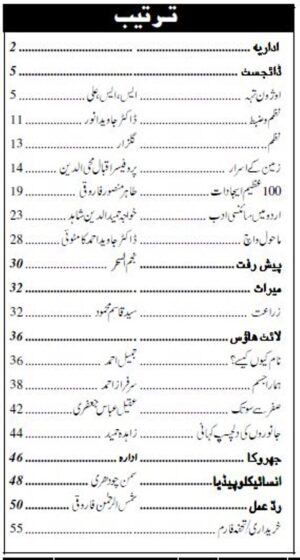 ترتیب
اداریہ ........ 2
ڈائجسٹ ........ 5
اوزون تہہ ........ ایس، ایس، علی ........ 5
نظم و ضبط ........ ڈاکٹر جاوید انور ........ 11
نظم ........ گلزار ........ 13
زمین کے اسرار ........ پروفیسر اقبال محی الدین ........ 14
100 عظیم ایجادات ........ طاہر منصور فاروقی ........ 19
اردو میں سائنسی ادب ........ خواجہ حمید الدین شاہد ........ 23
ماحول واچ ........ ڈاکٹر جاوید احمد کامٹوئی ........ 28
پیش رفت ........ نجم السحر ........ 30
میراث ........ 32
زراعت ........ سید قاسم محمود ........ 32
لائٹ ھاؤس ........ 36
نام کیوں کیسے؟ ........ جمیل احمد ........ 36
ہمارا جسم ........ سرفراز احمد ........ 38
صفر سے سو تک ........ عقیل عباس جعفری ........ 42
جانوروں کی دلچسپ کہانی ........ زاہدہ حمید ........ 44
جھروکا ........ ادارہ ........ 46
انسائیکلوپیڈیا ........ سمن چودھری ........ 48
ردّ عمل ........ شمس الرحمٰن فاروقی ........ 50
خریداری/تحفہ فارم ........ 55